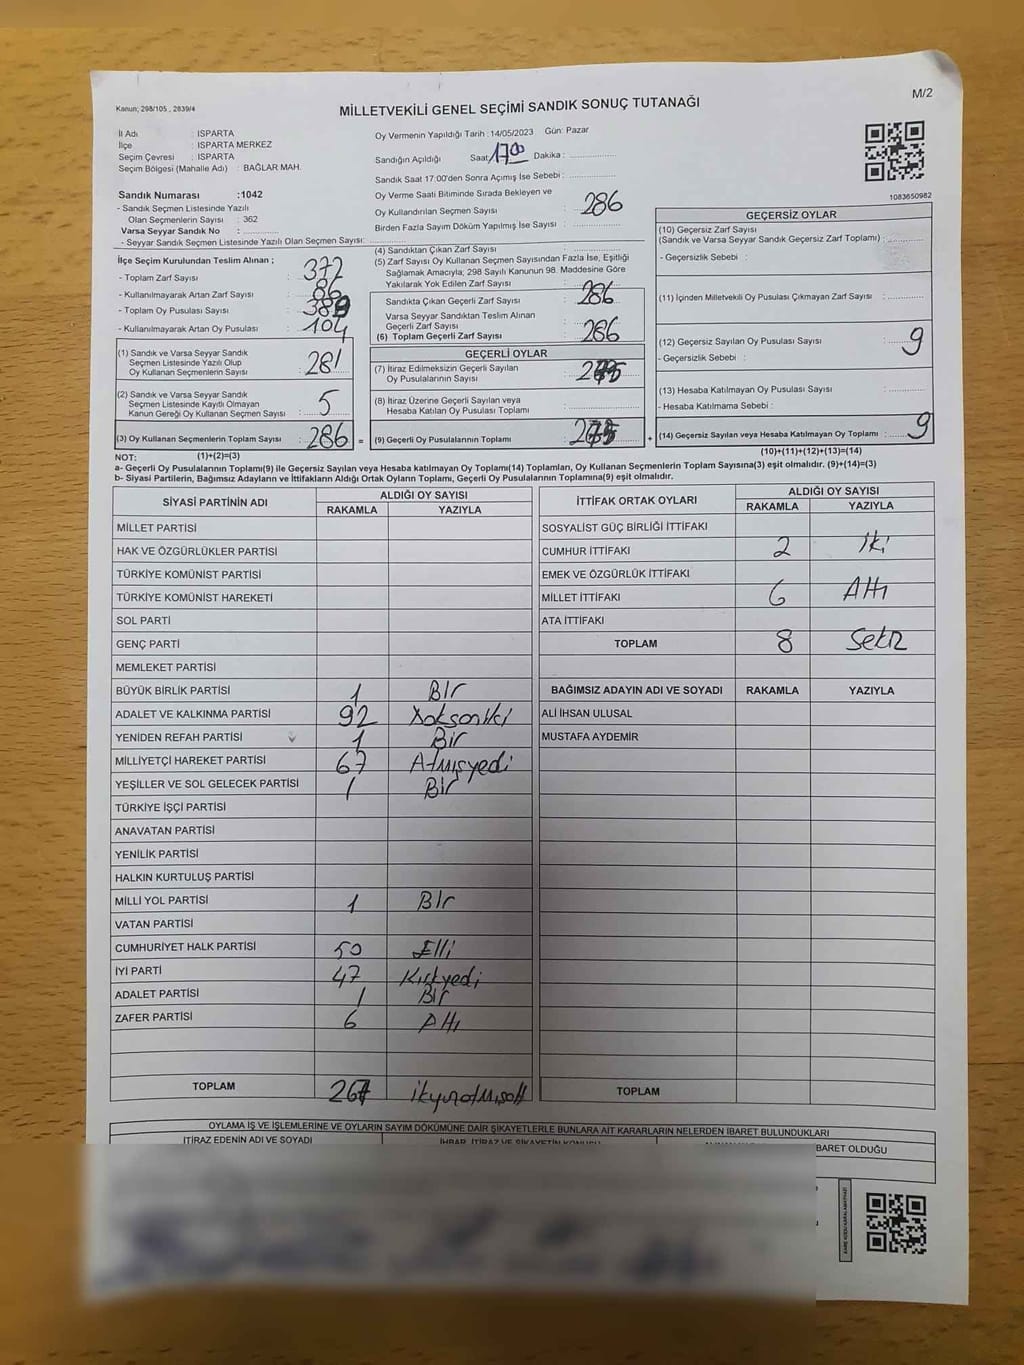 M/2
Kanun; 298/105 , 2839/4
MİLLETVEKİLİ GENEL SEÇİMİ SANDIK SONUÇ TUTANAĞI
İl Adı : ISPARTA
İlçe : ISPARTA MERKEZ
Seçim Çevresi : ISPARTA
Seçim Bölgesi (Mahalle Adı) : BAĞLAR MAH.
Sandık Numarası :1042
- Sandık Seçmen Listesinde Yazılı
Olan Seçmenlerin Sayısı : 362
Varsa Seyyar Sandık No :
- Seyyar Sandık Seçmen Listesinde Yazılı Olan Seçmen Sayısı:
Oy Vermenin Yapıldığı Tarih : 14/05/2023 Gün: Pazar
Sandığın Açıldığı Saat 17 00 Dakika :
Sandık Saat 17:00'den Sonra Açımış İse Sebebi :
Oy Verme Saati Bitiminde Sırada Bekleyen ve
Oy Kullandırılan Seçmen Sayısı : 286
Birden Fazla Sayım Döküm Yapılmış İse Sayısı :
1083650982
İlçe Seçim Kurulundan Teslim Alınan ;
- Toplam Zarf Sayısı : 372
- Kullanılmayarak Artan Zarf Sayısı : 86
- Toplam Oy Pusulası Sayısı :
- Kullanılmayarak Artan Oy Pusulası : 104
(1) Sandık ve Varsa Seyyar Sandık
Seçmen Listesinde Yazılı Olup
Oy Kullanan Seçmenlerin Sayısı : 281
(2) Sandık ve Varsa Seyyar Sandık
Seçmen Listesinde Kayıtlı Olmayan
Kanun Gereği Oy Kullanan Seçmen Sayısı : 5
(3) Oy Kullanan Seçmenlerin Toplam Sayısı : 286 =
(4) Sandıktan Çıkan Zarf Sayısı :
(5) Zarf Sayısı Oy Kullanan Seçmen Sayısından Fazla İse, Eşitliği
Sağlamak Amacıyla; 298 Sayılı Kanunun 98. Maddesine Göre
Yakılarak Yok Edilen Zarf Sayısı :
Sandıkta Çıkan Geçerli Zarf Sayısı : 286
Varsa Seyyar Sandıktan Teslim Alınan
Geçerli Zarf Sayısı :
(6) Toplam Geçerli Zarf Sayısı : 286
GEÇERLİ OYLAR
(7) İtiraz Edilmeksizin Geçerli Sayılan
Oy Pusulalarının Sayısı :
(8) İtiraz Üzerine Geçerli Sayılan veya
Hesaba Katılan Oy Pusulası Toplamı :
(9) Geçerli Oy Pusulalarının Toplamı : +
GEÇERSİZ OYLAR
(10) Geçersiz Zarf Sayısı
(Sandık ve Varsa Seyyar Sandık Geçersiz Zarf Toplamı) :
- Geçersizlik Sebebi :
(11) İçinden Milletvekili Oy Pusulası Çıkmayan Zarf Sayısı :
(12) Geçersiz Sayılan Oy Pusulası Sayısı : 9
- Geçersizlik Sebebi :
(13) Hesaba Katılmayan Oy Pusulası Sayısı :
- Hesaba Katılmama Sebebi :
(14) Geçersiz Sayılan veya Hesaba Katılmayan Oy Toplamı : 9
NOT: (1)+(2)=(3)
(10)+(11)+(12)+(13)=(14)
a- Geçerli Oy Pusulalarının Toplamı(9) ile Geçersiz Sayılan veya Hesaba katılmayan Oy Toplamı(14) Toplamları, Oy Kullanan Seçmenlerin Toplam Sayısına(3) eşit olmalıdır. (9)+(14)=(3)
b- Siyasi Partilerin, Bağımsız Adayların ve İttifakların Aldığı Ortak Oyların Toplamı, Geçerli Oy Pusulalarının Toplamına(9) eşit olmalıdır.
SİYASİ PARTİNİN ADI ALDIĞI OY SAYISI
RAKAMLA YAZIYLA
MİLLET PARTİSİ
HAK VE ÖZGÜRLÜKLER PARTİSİ
TÜRKİYE KOMÜNİST PARTİSİ
TÜRKİYE KOMÜNİST HAREKETİ
SOL PARTİ
GENÇ PARTİ
MEMLEKET PARTİSİ
BÜYÜK BİRLİK PARTİSİ 1 Bir
ADALET VE KALKINMA PARTİSİ 92
YENİDEN REFAH PARTİSİ 1 Bir
MİLLİYETÇİ HAREKET PARTİSİ 67 Atmışyedi
YEŞİLLER VE SOL GELECEK PARTİSİ 1 Bir
TÜRKİYE İŞÇİ PARTİSİ
ANAVATAN PARTİSİ
YENİLİK PARTİSİ
HALKIN KURTULUŞ PARTİSİ
MİLLİ YOL PARTİSİ 1 Bir
VATAN PARTİSİ
CUMHURİYET HALK PARTİSİ 50 Elli
İYİ PARTİ 47 Kırkyedi
ADALET PARTİSİ 1 Bir
ZAFER PARTİSİ 6 Altı
TOPLAM
İTTİFAK ORTAK OYLARI ALDIĞI OY SAYISI
RAKAMLA YAZIYLA
SOSYALİST GÜÇ BİRLİĞİ İTTİFAKI
CUMHUR İTTİFAKI 2 iki
EMEK VE ÖZGÜRLÜK İTTİFAKI
MİLLET İTTİFAKI 6 Altı
ATA İTTİFAKI
TOPLAM 8 Sekiz
BAĞIMSIZ ADAYIN ADI VE SOYADI RAKAMLA YAZIYLA
ALİ İHSAN ULUSAL
MUSTAFA AYDEMİR
TOPLAM
OYLAMA İŞ VE İŞLEMLERİNE VE OYLARIN SAYIM DÖKÜMÜNE DAİR ŞİKAYETLERLE BUNLARA AİT KARARLARIN NELERDEN İBARET BULUNDUKLARI
İTİRAZ EDENİN ADI VE SOYADI İHBAR, İTİRAZ VE ŞİKAYETİN KONUSU BARET OLDUĞU